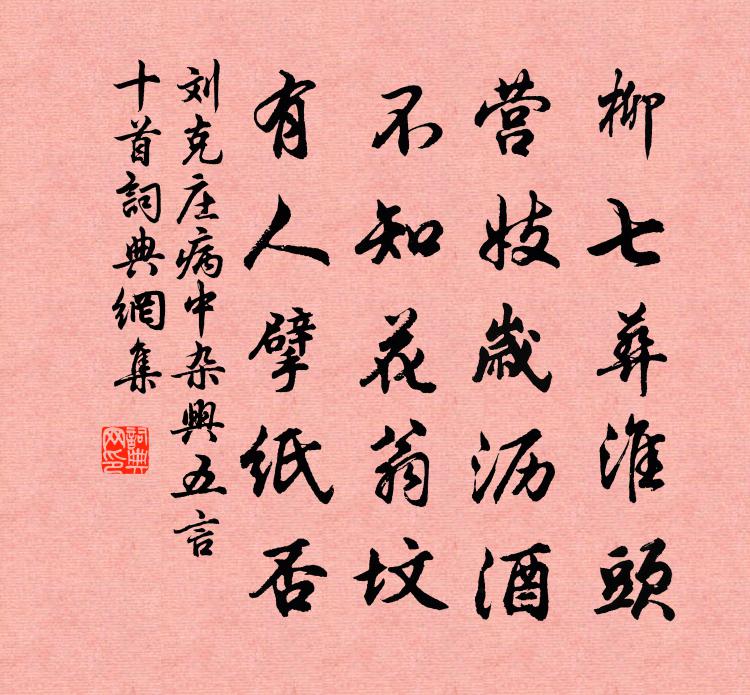 柳七葬淮頭
营妓歲沥酒
不知花翁坟
有人擘纸否
刘克庄病中杂興五言
十首詞典網集
詞典
网印